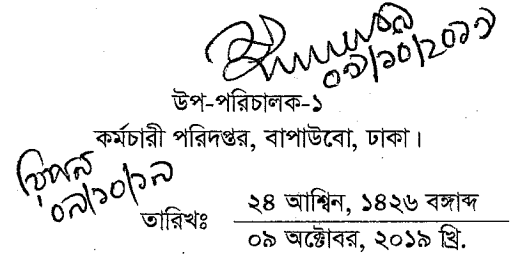 ০৯/১০/২০১৯
উপ-পরিচালক-১
কর্মচারী পরিদপ্তর, বাপাউবো, ঢাকা।
০৯/১০/১৯
তারিখঃ ২৪ আশ্বিন, ১৪২৬ বঙ্গাব্দ
০৯ অক্টোবর, ২০১৯ খ্রি.